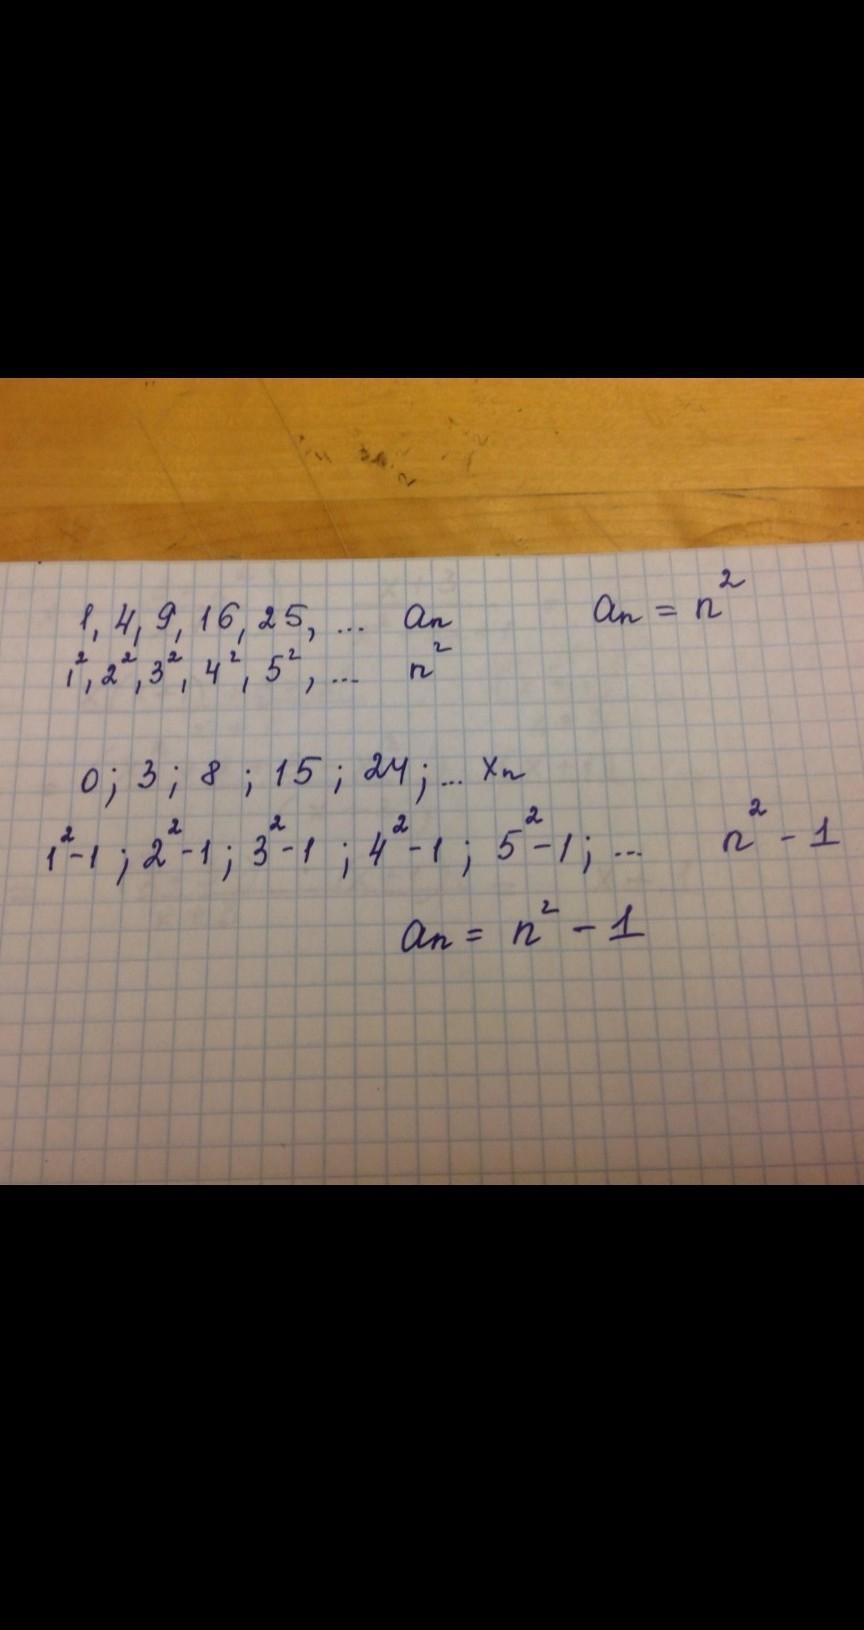 1, 4, 9, 16, 25, ... an an = n²
1², 2², 3², 4², 5², ... n²
0; 3; 8; 15; 24; ... xn
1²-1; 2²-1; 3²-1; 4²-1; 5²-1; ... n² - 1
an = n² - 1